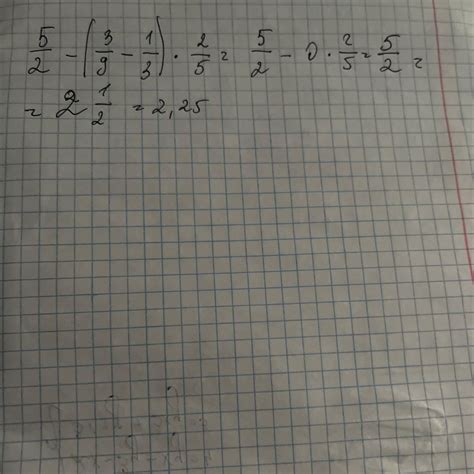 5/2 - (3/9 - 1/3) · 2/5 = 5/2 - 0 · 2/5 = 5/2 =
= 2 1/2 = 2,25